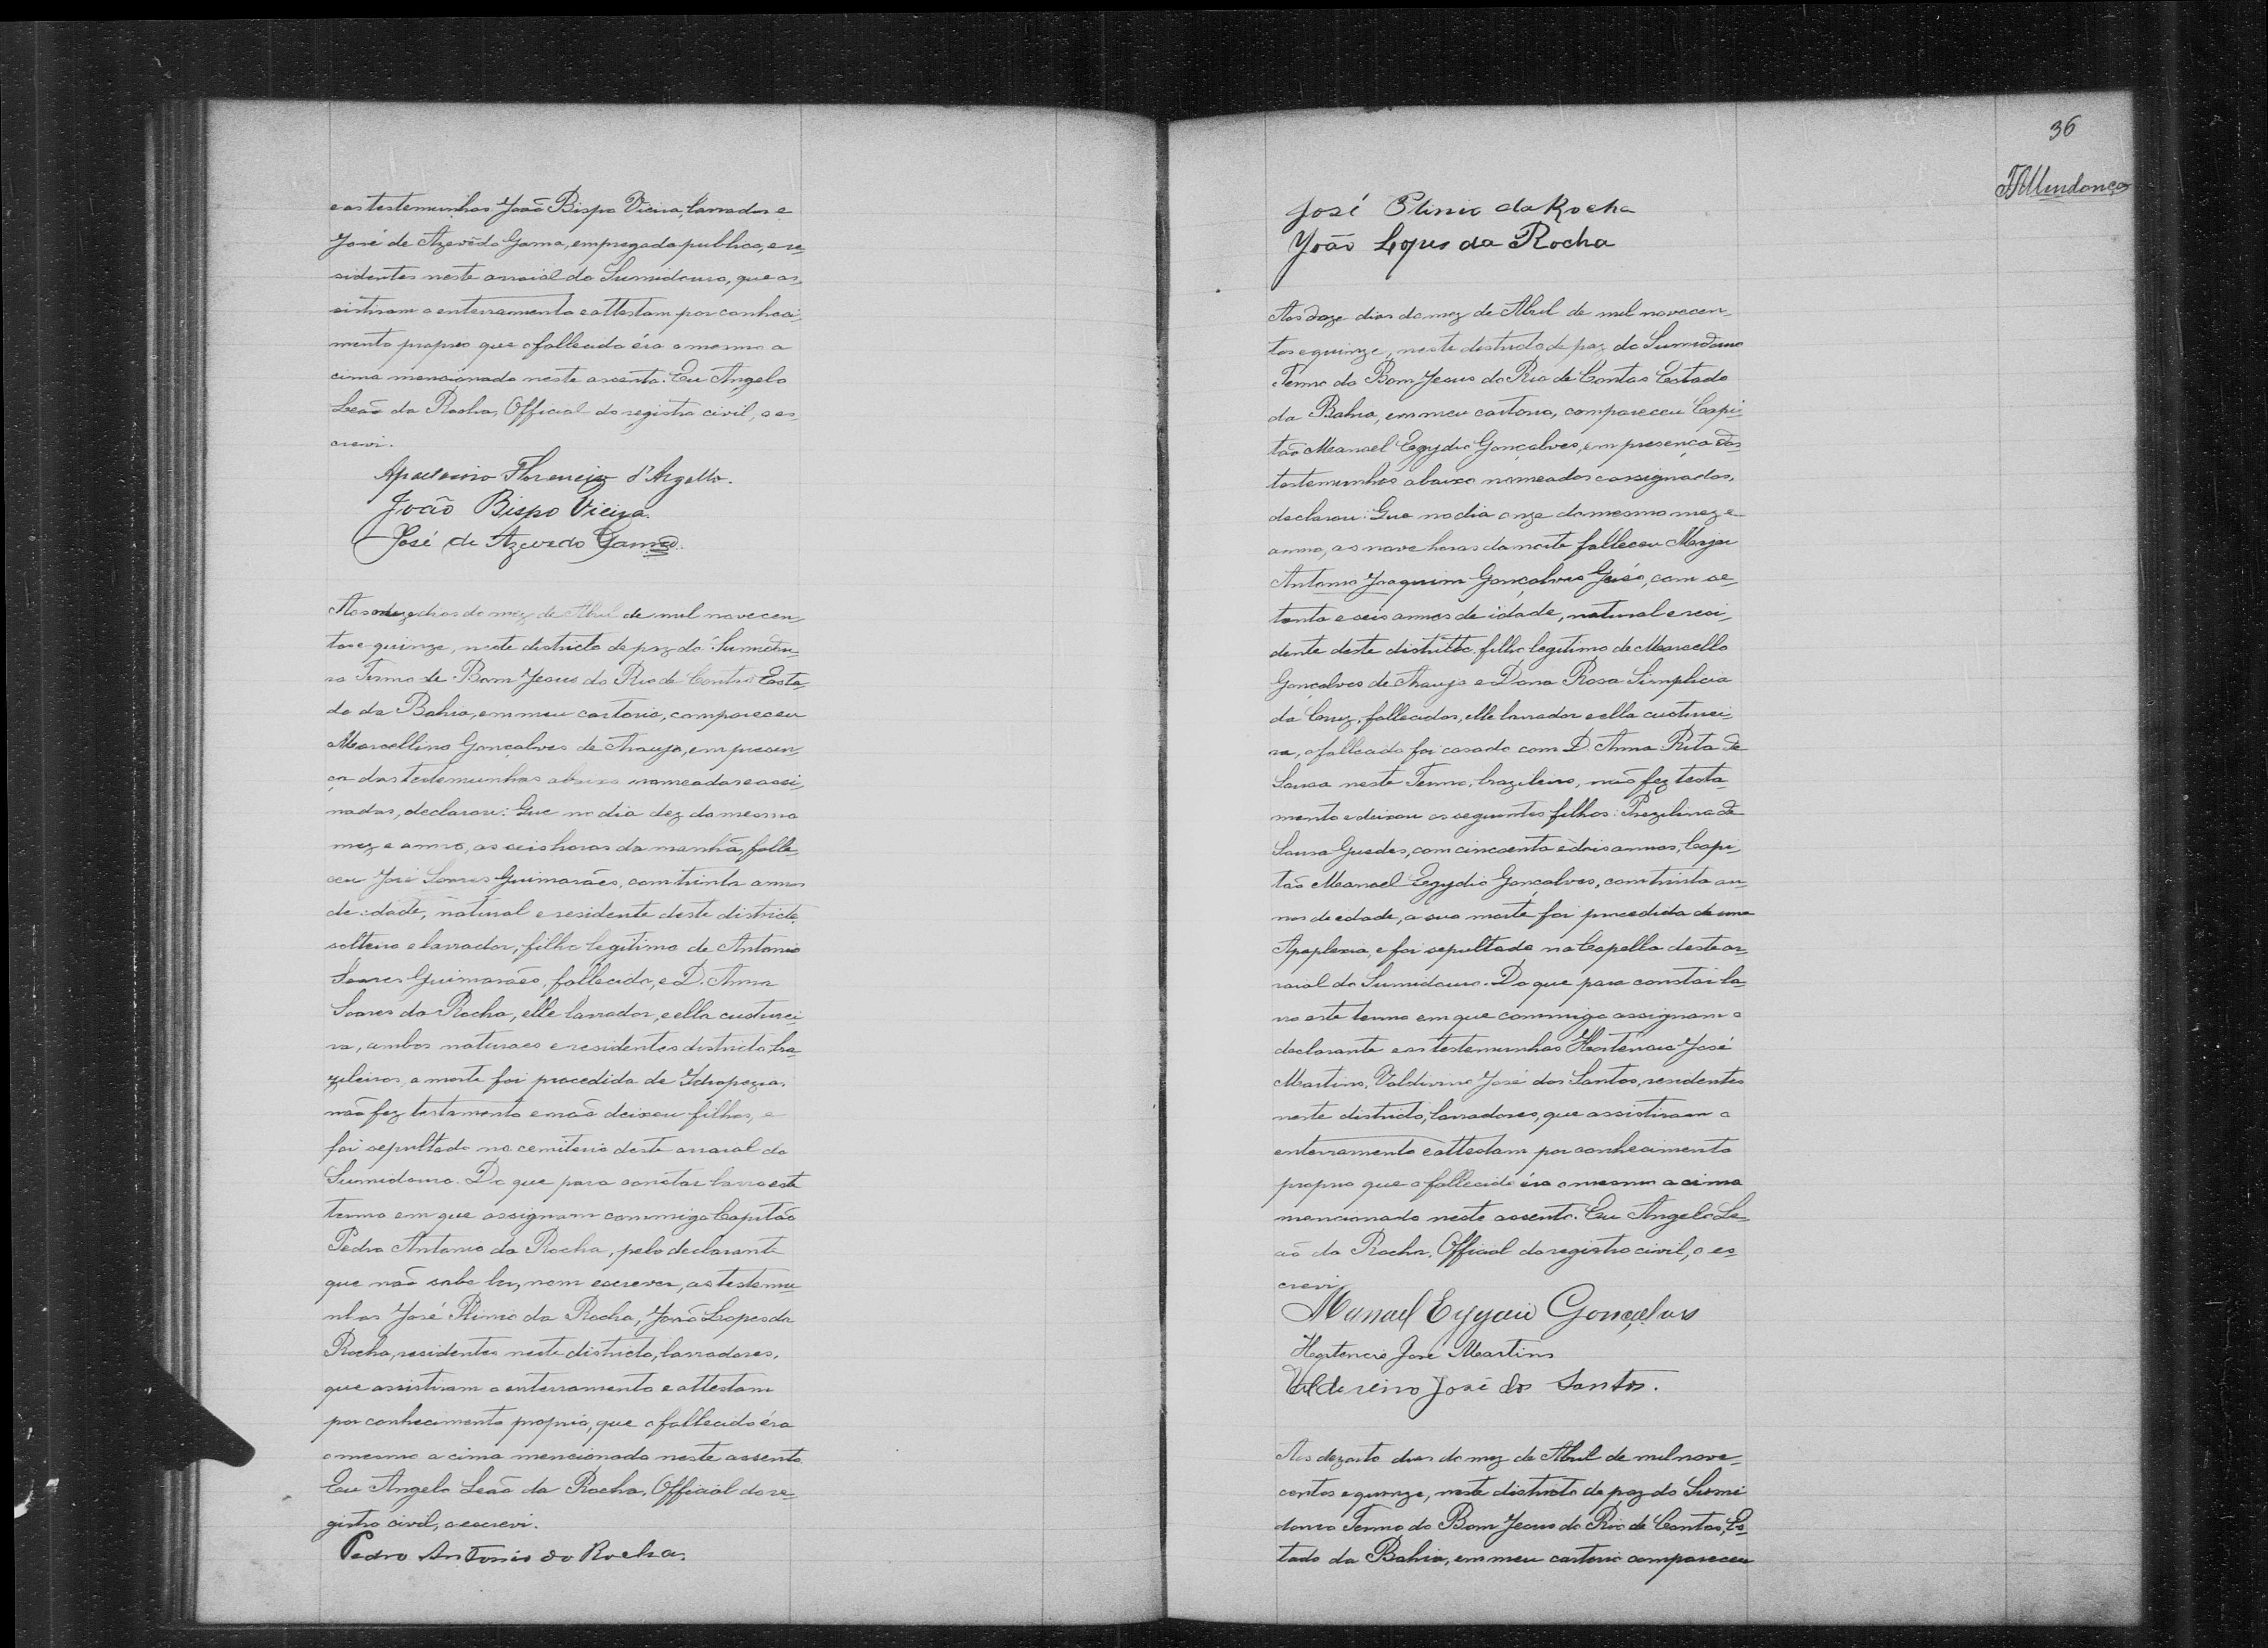 e as testemunhas João Bispo Vieira, lavrador e
José de Azevêdo Gama, empregado publico, e re-
sidentes neste arraial do Sumidouro, que as-
sistiram o enterramento e attestam por conheci-
mento proprio que o fallecido éra o mesmo a
cima mencionado neste assento. Eu Angelo
Leão da Rocha, Official do registro civil, o es-
crevi.
Florencio d'Argollo.
João Bispo Vieira.
José de Azevedo Gama.
Aos onze dias do mez de Abril de mil novecen-
tos e quinze, neste districto de paz do Sumidou-
ro Termo de Bom Jesus do Rio de Contas Esta-
do da Bahia, em meu cartorio, compareceu
Marcellino Gonçalves de Araujo, em presen-
ça das testemunhas abaixo nomeadas e assi-
nadas, declarou: Que no dia dez do mesmo
mez e anno, as seis horas da manhã, falle-
ceu José Soares Guimarães, com trinta annos
de idade, natural e residente deste districto,
solteiro e lavrador, filho legitimo de Antonio
Soares Guimarães, fallecido, e D. Anna
Soares da Rocha, elle lavrador, e ella custurei-
ra, ambos naturaes e residentes districto, bra-
zileiros, a morte foi procedida de Idropezia,
não fez testamento e não deixou filhos, e
foi sepultado no cemiterio deste arraial do
Sumidouro. Do que para constar lavro este
termo em que assignam commigo Capitão
Pedro Antonio da Rocha, pelo declarante
que não sabe ler, nem escrever, as testemu-
nhas José Plinio da Rocha, João Lopes da
Rocha, residentes neste districto, lavradores,
que assistiram o enterramento e attestam
por conhecimento proprio, que o fallecido éra
o mesmo a cima mencionado neste assento.
Eu Angelo Leão da Rocha, Official do re-
gistro civil, o escrevi.
Pedro Antonio da Rocha.
36
José Plinio da Rocha
João Lopes da Rocha
Aos doze dias do mez de Abril de mil novecen-
tos e quinze, neste districto de paz do Sumidouro
Termo do Bom Jesus do Rio de Contas Estado
da Bahia, em meu cartorio, compareceu Capi-
tão Manoel Egydio Gonçalves, em presença das
testemunhas abaixo nomeadas e assignadas,
declarou: Que no dia onze do mesmo mez e
anno, as nove horas da noite falleceu Major
Antonio Joaquim Gonçalves, com se-
tenta e seis annos de idade, natural e resi-
dente deste districto, filho legitimo de Marcello
Gonçalves de Araujo e Dona Rosa Simplicia
da Cruz, fallecidos, elle lavrador e ella custurei-
ra, o fallecido foi casado com D. Anna Rita de
Sousa neste Termo, brazileiro, não fez testa-
mento e deixou os seguintes filhos: Prezilina de
Sousa Guedes, com cincoenta e dois annos, Capi-
tão Manoel Egydio Gonçalves, com trinta an-
nos de edade, a sua morte foi procedida de uma
Apoplexia, e foi sepultado na Capella deste ar-
raial do Sumidouro. Do que para constar la-
vro este termo em que commigo assignam o
declarante e as testemunhas Hortencio José
Martins, Valdivino José dos Santos, residentes
neste districto, lavradores, que assistiram o
enterramento e attestam por conhecimento
proprio que o fallecido éra o mesmo a cima
mencionado neste assento. Eu Angelo Le-
ão da Rocha, Official do registro civil, o es-
crevi.
Manoel Egydio Gonçalves
Hortencio José Martins
José dos Santos.
Aos dezoito dias do mez de Abril de mil nove-
centos e quinze, neste districto de paz do Sumi-
douro Termo do Bom Jesus do Rio de Contas, Es-
tado da Bahia, em meu cartorio compareceu